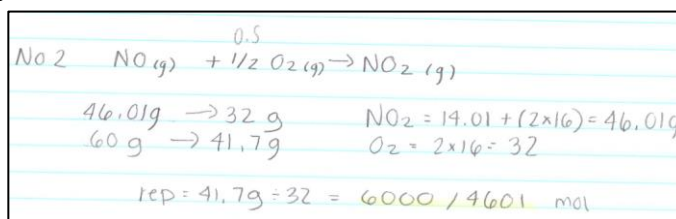 0.5
No 2 NO (g) + 1/2 O2 (g) → NO2 (g)
46.01g → 32 g NO2 = 14.01 + (2×16) = 46.01g
60 g → 41.7g O2 = 2×16 = 32
rep = 41.7g ÷ 32 = 6000 / 4601 mol